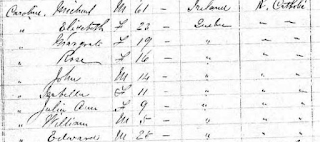 Caroline, Michael M 61 — Ireland R. Catholic
" Elizabeth F 23 — Quebec "
" Margaret F 19 — " "
" Rose F 16 — " "
" John M 14 — " "
" Isabella F 11 — " "
" Julia Ann F 9 — " "
" William M 5 — " "
" Edward M 25 — " "